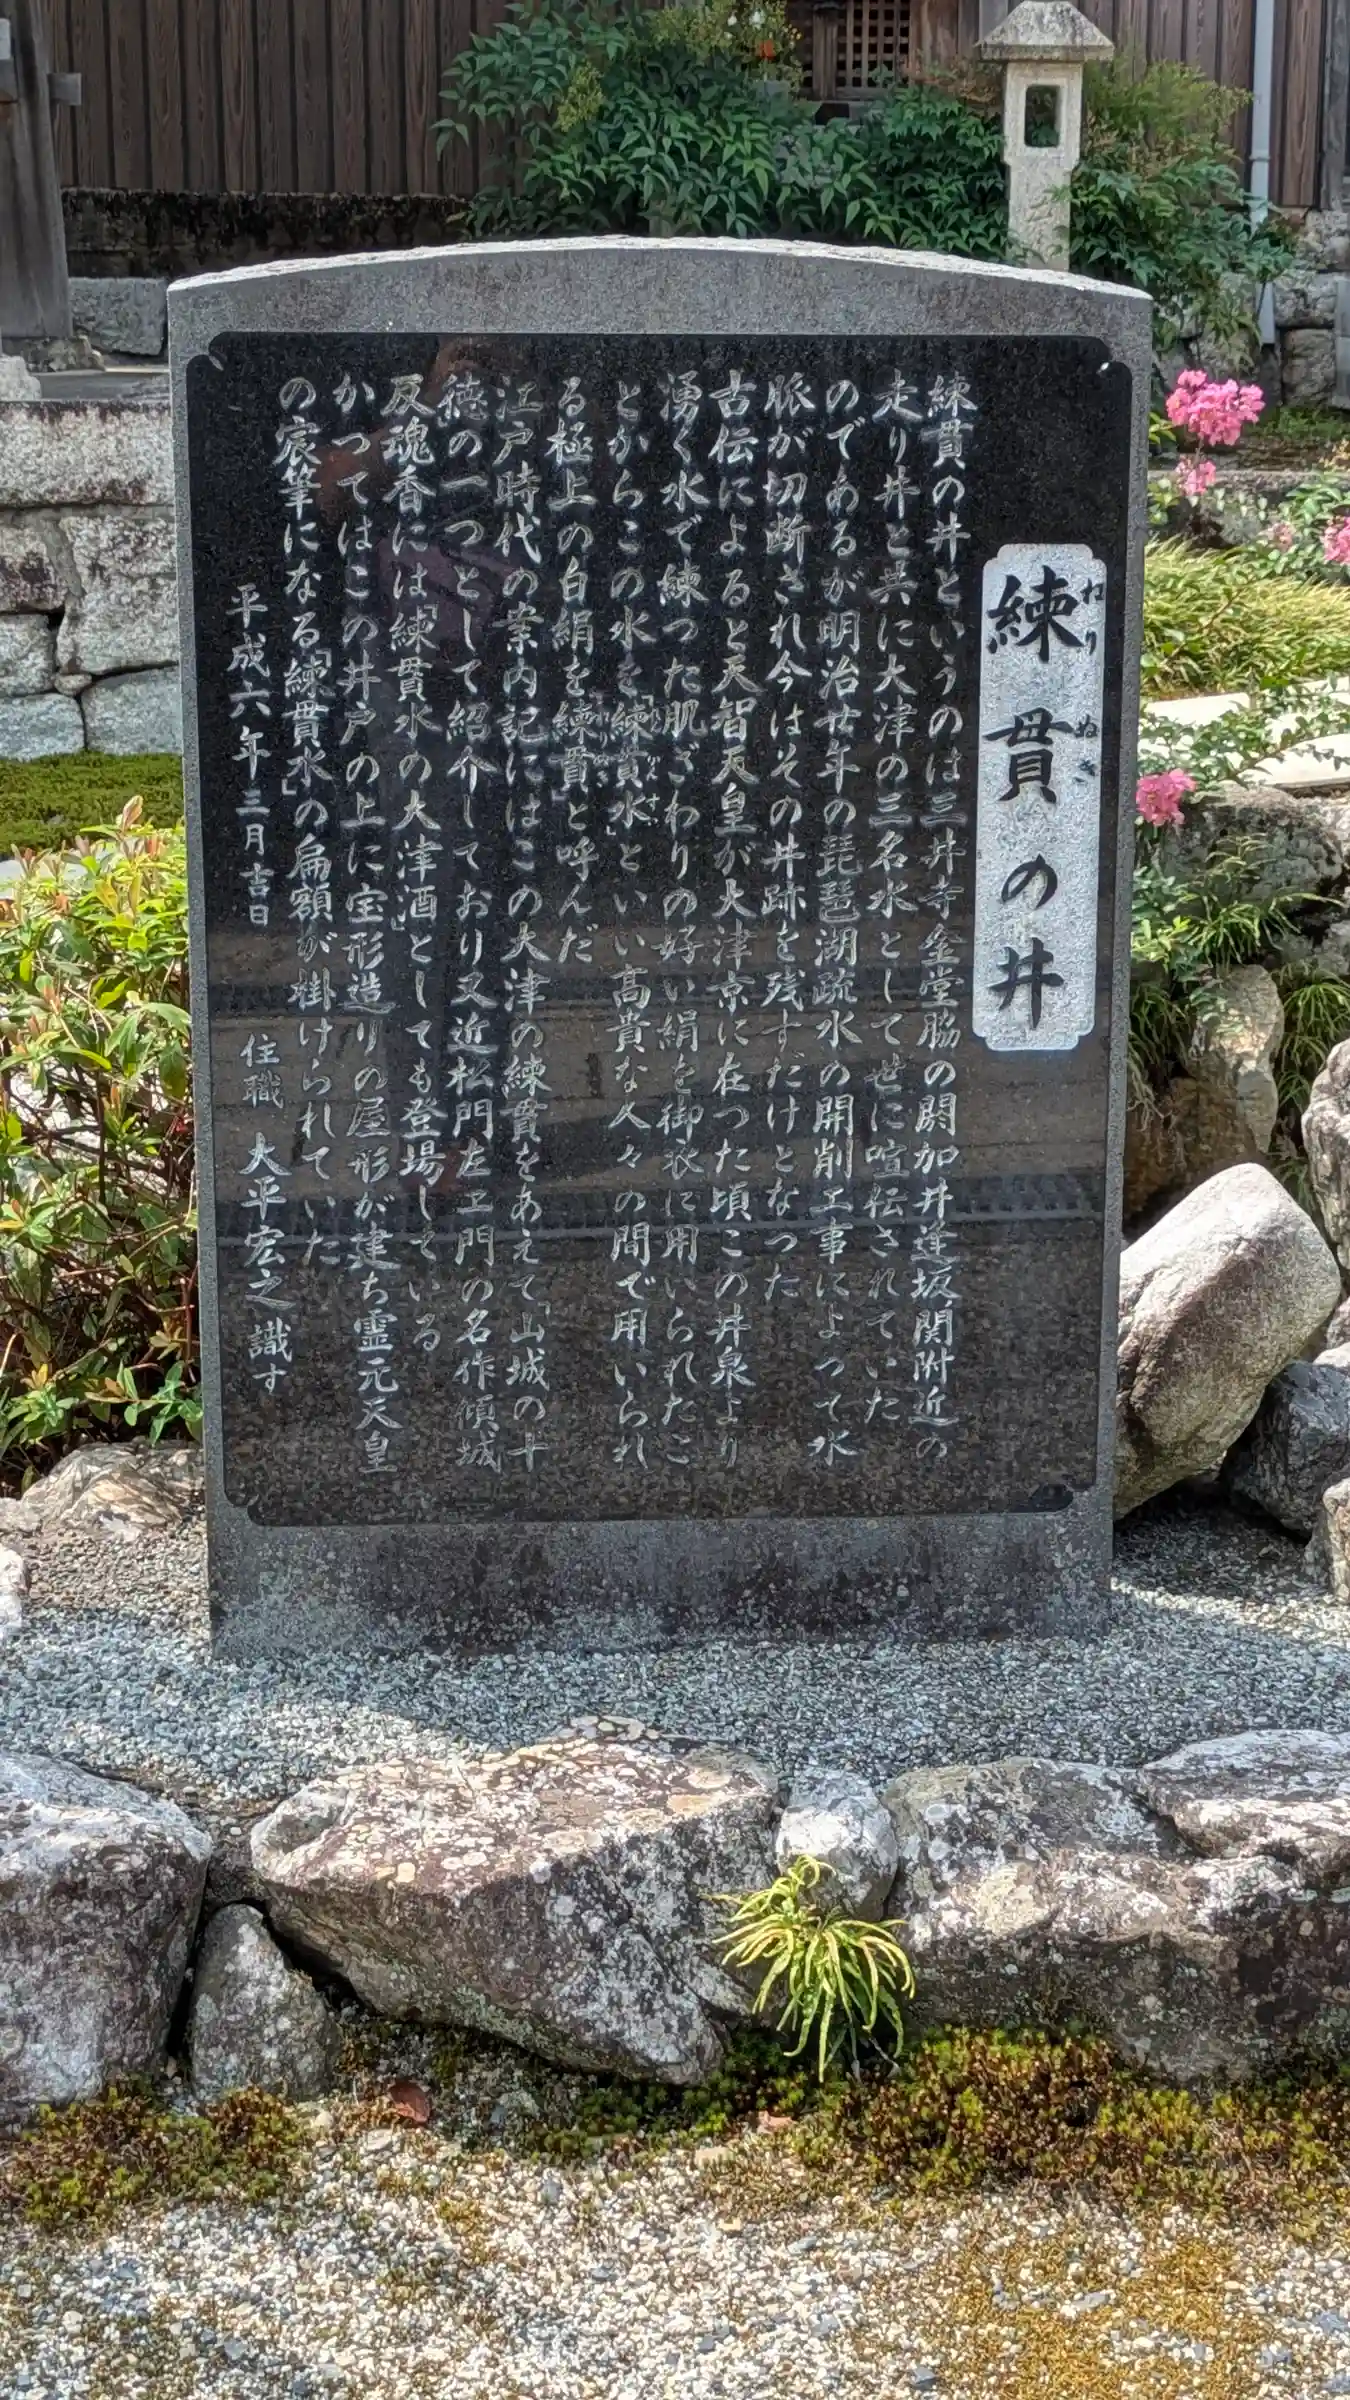 練貫の井
ねりぬき
練貫の井というのは三井寺金堂脇の閼加井逢坂関附近の
走り井と共に大津の三名水として世に喧伝されていた
のであるが明治廿年の琵琶湖疏水の開削工事によって水
脈が切断され今はその井跡を残すだけとなった
古伝によると天智天皇が大津京に在つた頃この井泉より
湧く水で練つた肌ざわりの好い絹を御衣に用いられたこ
とからこの水を「練貫水」といい高貴な人々の間で用いられ
る極上の白絹を「練貫」と呼んだ
江戸時代の案内記にはこの大津の練貫をあえて「山城の十
徳の一つとして紹介しており又近松門左ヱ門の名作傾城
反魂香には「練貫水の大津酒」としても登場している
かつてはこの井戸の上に宝形造りの屋形が建ち霊元天皇
の宸筆になる「練貫水」の扁額が掛けられていた
平成六年三月吉日 住職 大平宏之 識す